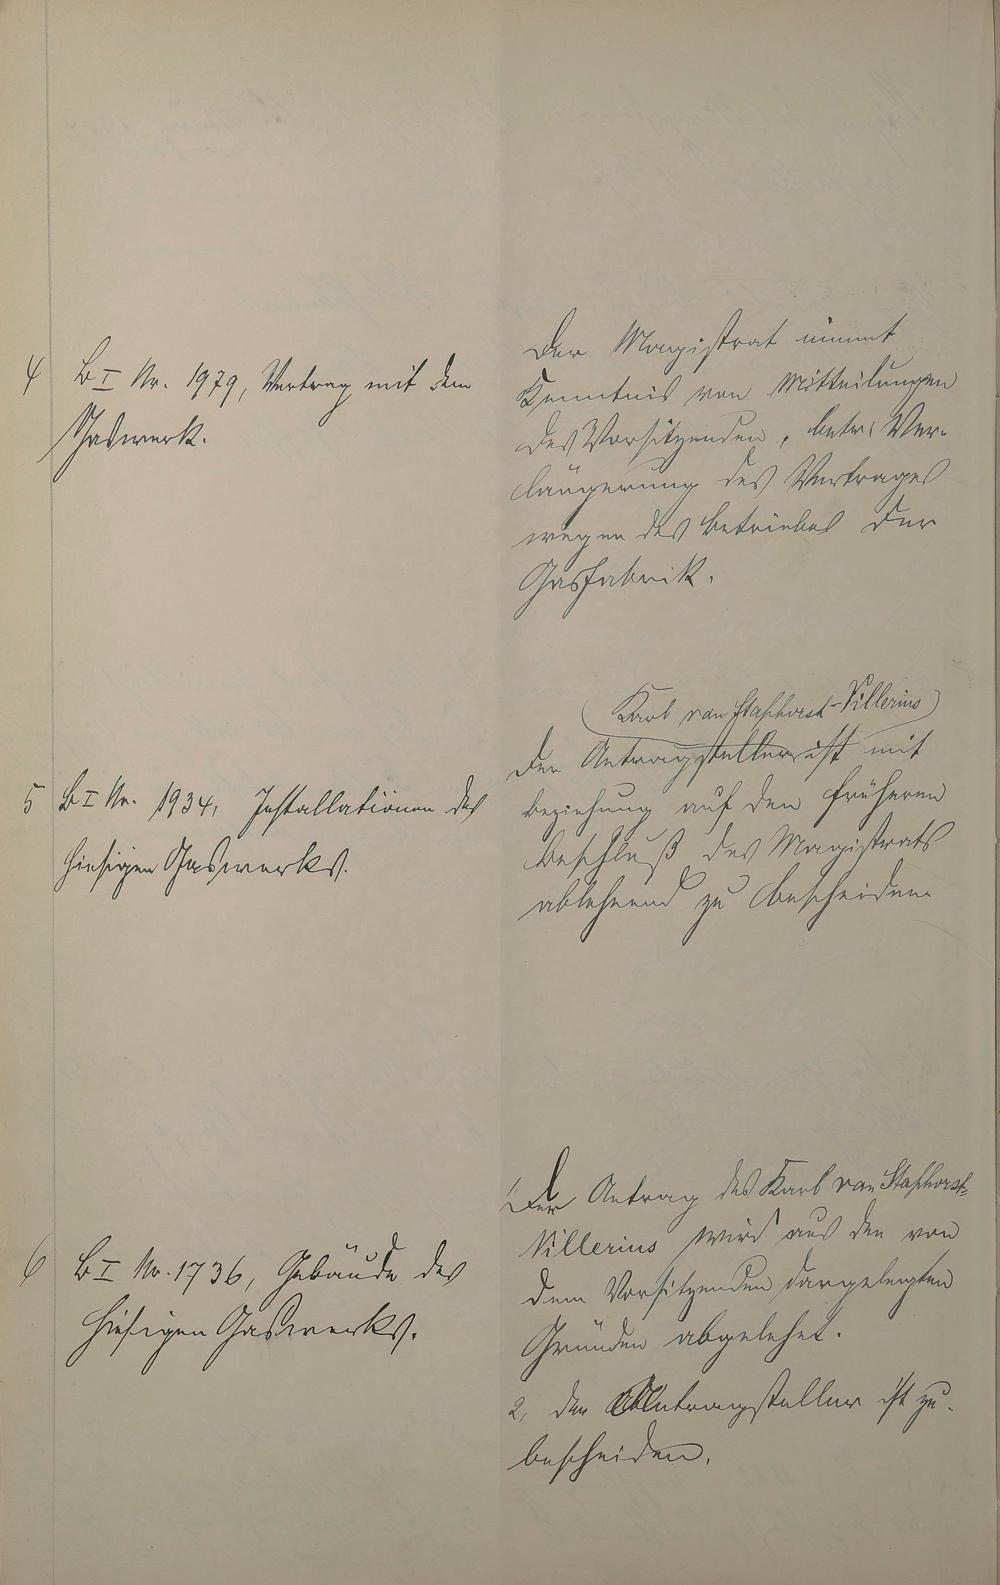 4 B I Nr. 1979, Vertrag mit dem
Gaswerk.
Der Magistrat nimmt
Kenntnis von Mitteilungen
des Vorsitzenden, betr. Ver-
längerung des Vertrages
wegen des Betriebes der
Gasfabrik.
5 B I Nr. 1934, Installationen des
hiesigen Gaswerks.
(Karl van Staphorst-Villerius)
Der Antragsteller ist mit
Beziehung auf den früheren
Beschluß des Magistrats
ablehnend zu bescheiden
6 B I No. 1736, Gebäude des
hiesigen Gaswerks.
1, Der Antrag des Karl van Staphorst-
Villerius wird aus den von
dem Vorsitzenden dargelegten
Gründen abgelehnt.
2, der Antragsteller ist zu
bescheiden.